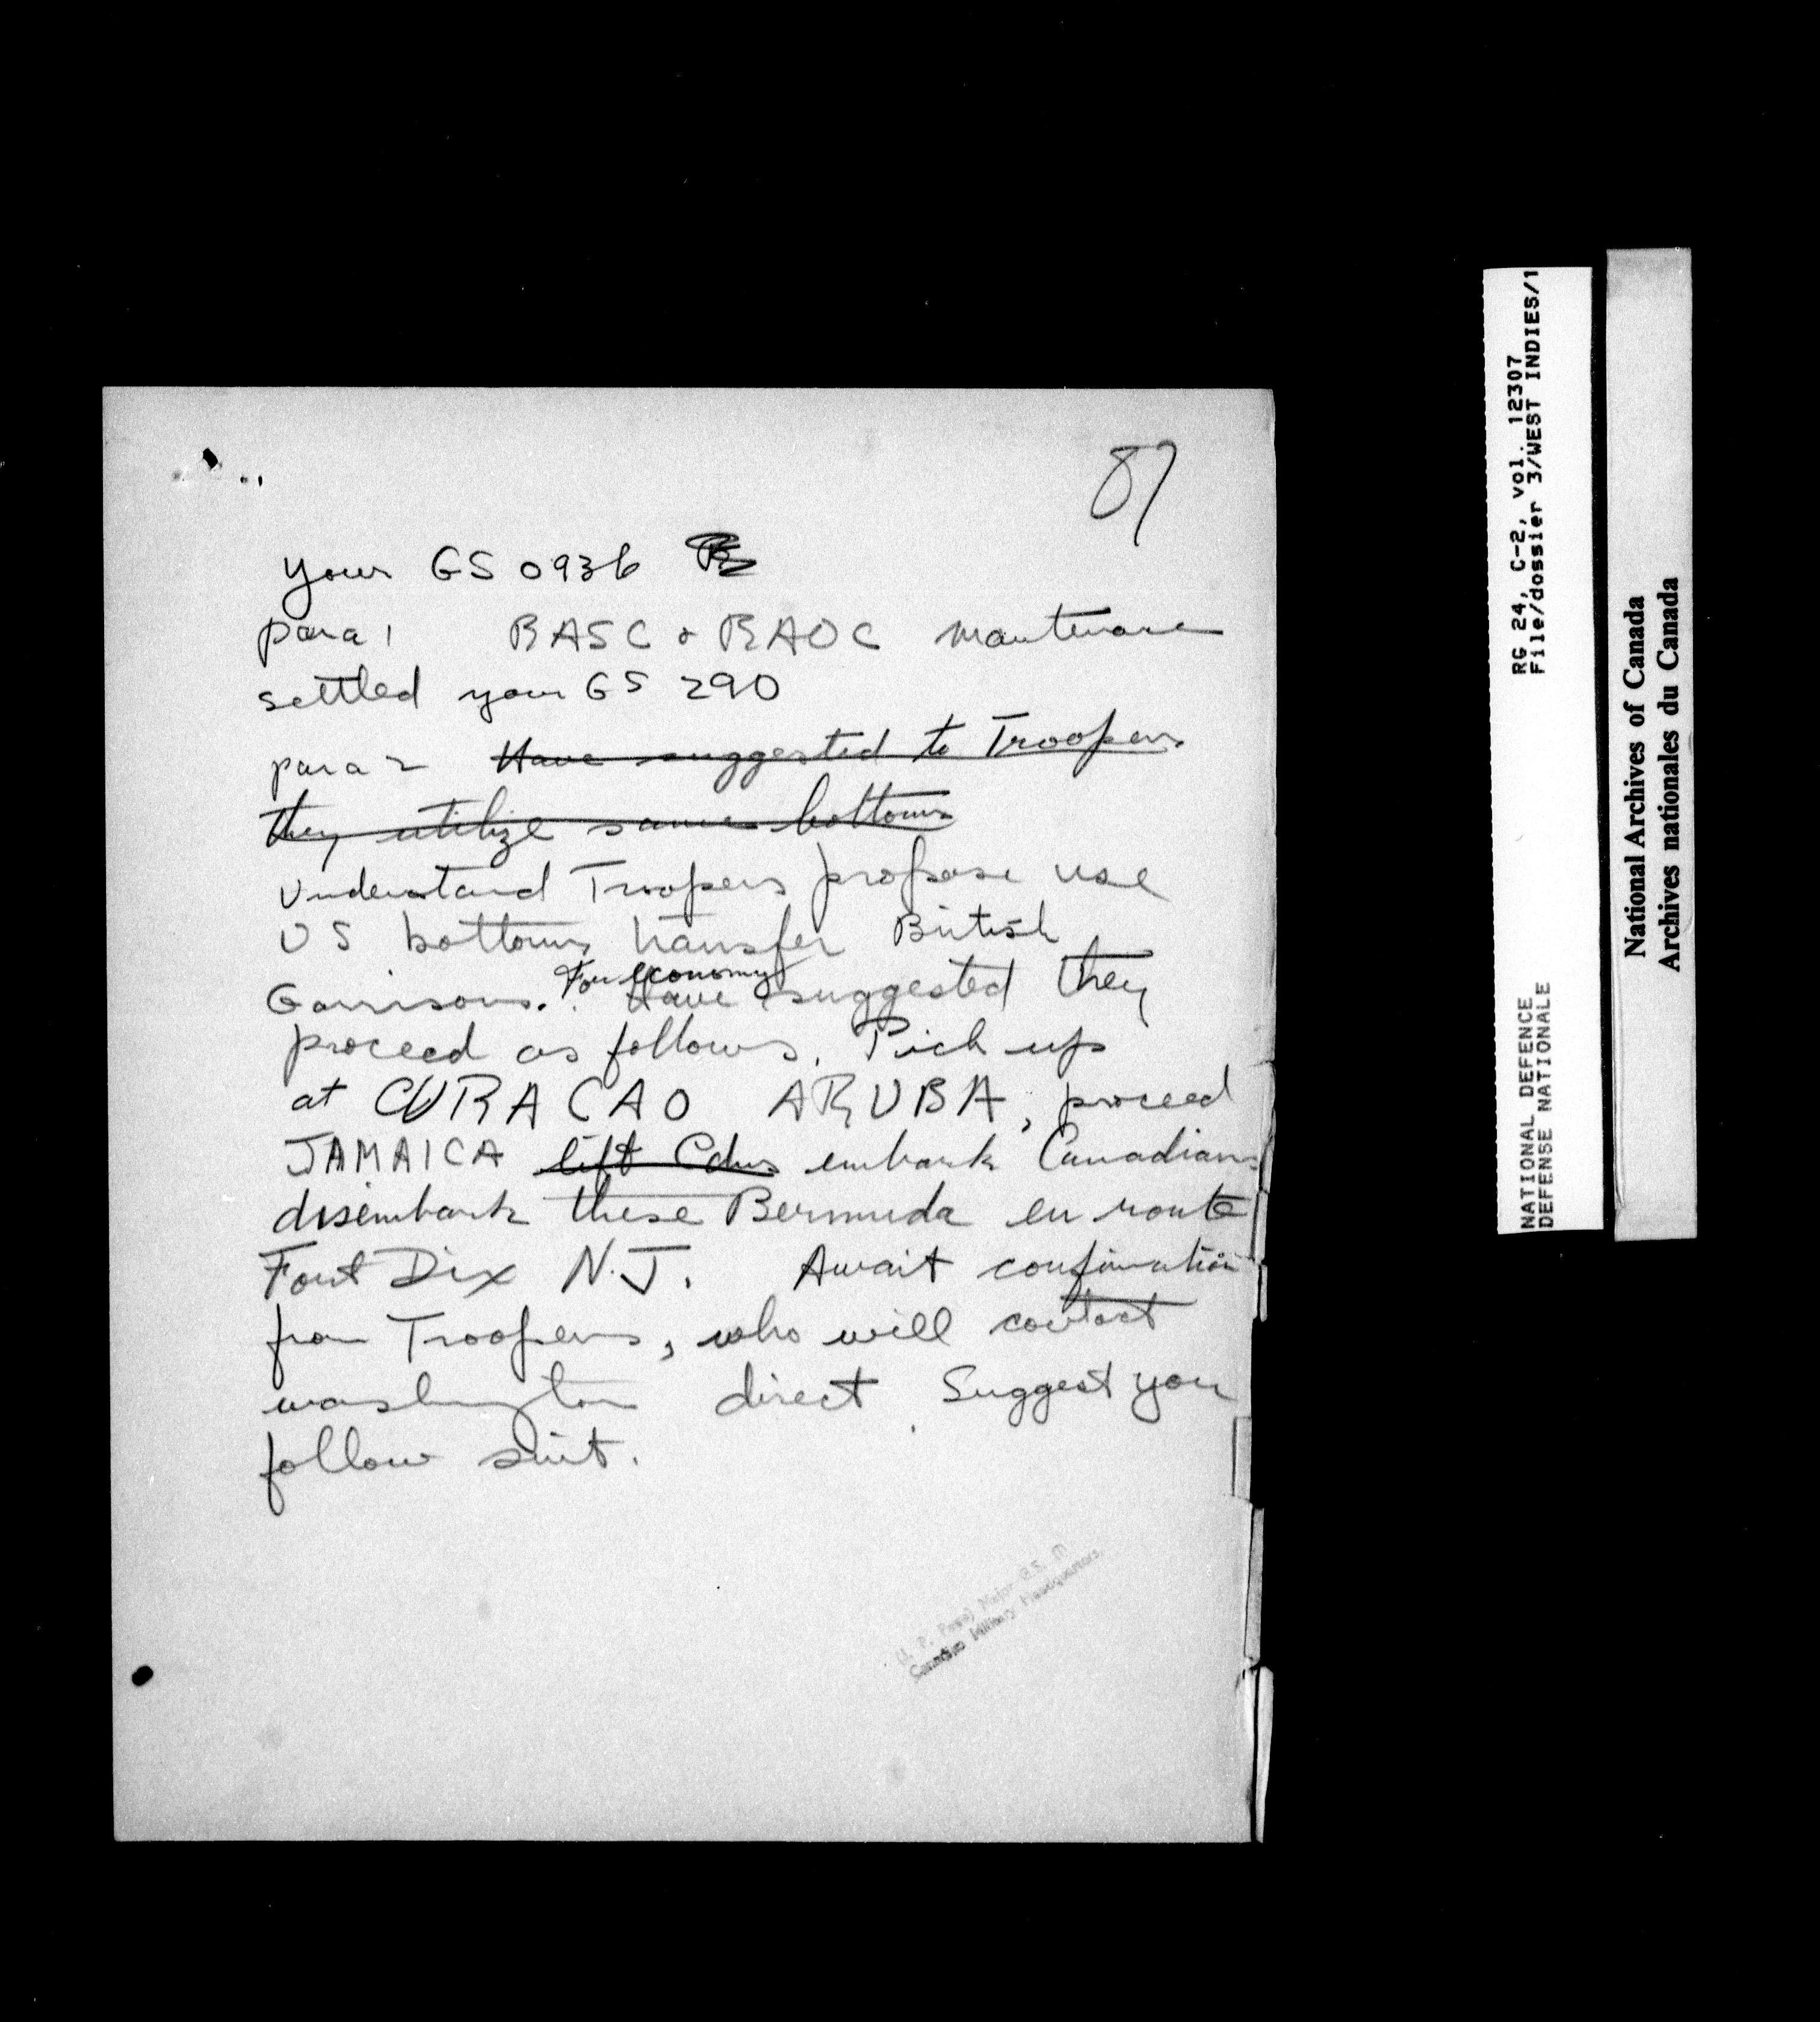 87
Your GS 0936
para 1 RASC & RAOC maintenance
settled your GS 290
para 2 Have suggested to Troopers
they utilize same bottoms
Understand Troopers propose use
US bottoms transfer British
Garrisons. For economy Have suggested they
proceed as follows. Pick up
at CURACAO ARUBA, proceed
JAMAICA lift Cdns embark Canadians
disembark these Bermuda en route
Fort Dix N.J. Await confirmation
from Troopers, who will contact
washington direct. Suggest you
follow suit.
Major G.S.
Canadian Military Headquarters.
RG 24, C-2, vol. 12307
File/dossier 3/WEST INDIES/1
NATIONAL DEFENCE
DEFENSE NATIONALE
National Archives of Canada
Archives nationales du Canada